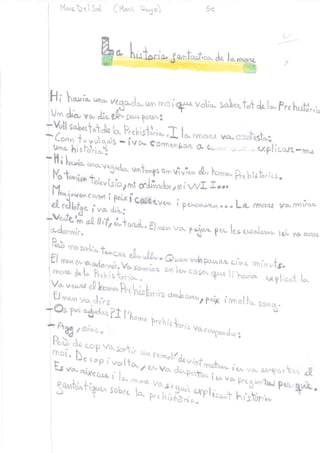 Mar Del Sol 5è
Una historia fantastica de la mare
Hi havia una vegada un noi que volia saber tot de la Prehistòria
Un dia va dir pares:
-Voll saber tot de la Prehistòria. I la mare va contesta:
-Com tu vulguis - i va començar a explicar-me
una història:
-Hi havia una vegada un temps on vivien els homes Prehistorics.
No tenien televisió, ni ordinador, ni WII I...
Menjaven carn i peix i caçaven i pescaven... La mare va mirar
el rellotge i va dir:
-Vate'n al llit, és tard. El nen va pujar per les escaleres i es va anar
a dormir.
Però no podia tancar els ulls. Quan van passar cinc minuts.
El nen es adormir. Va somiar en les coses que li havia explicat la
mare de la Prehistoria.
Va veure el home Prehistoric amb carn, peix i molta sang.
El nen va dir:
-Os puc ajudar? I l'home prehistoric va respondre:
-Agg, oinc.
Però de cop va sortir un de vint metres i es va emportar el
noi. De cop i volta, es va despertar i es va preguntar per què.
Es va aixecar i la mare va seguir explicant històries
fantàstiques sobre la prehistòria.